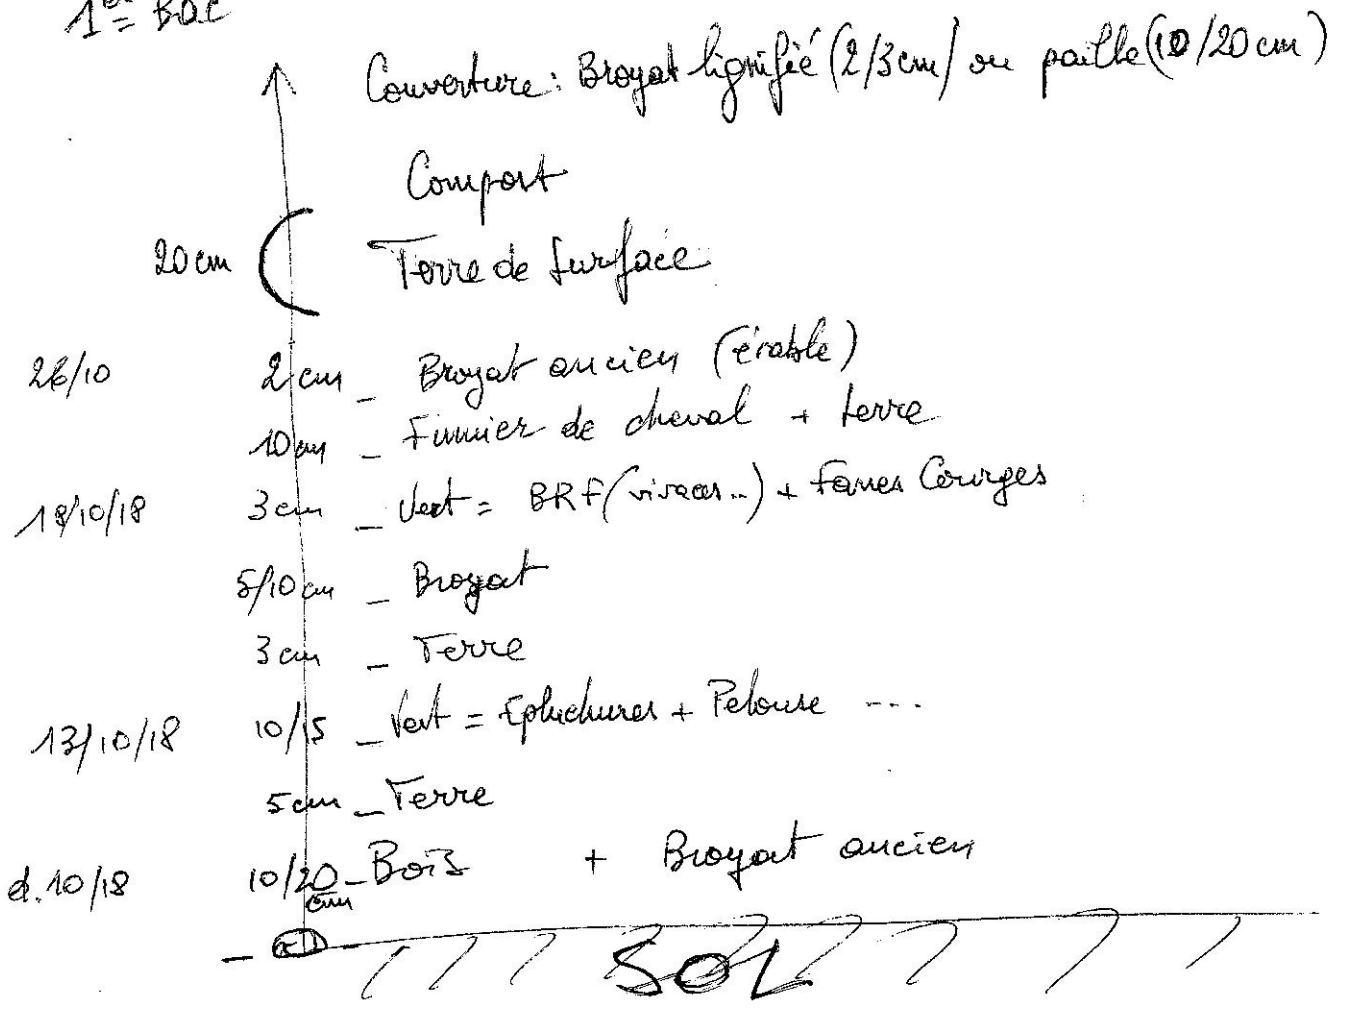 1er BAC
Couverture : Broyat lignifié (2/3cm) ou paille (10/20cm)
Compost
20cm Terre de Surface
26/10 2cm _ Broyat ancien (érable)
10cm _ Fumier de cheval + terre
18/10/18 3cm _ Vert = BRF (vivaces...) + Fanes Courges
5/10cm _ Broyat
3cm _ Terre
13/10/18 10/15 _ Vert = Epluchures + Pelouse ....
5cm _ Terre
d.10/18 10/20 cm _ Bois + Broyat ancien
SOL